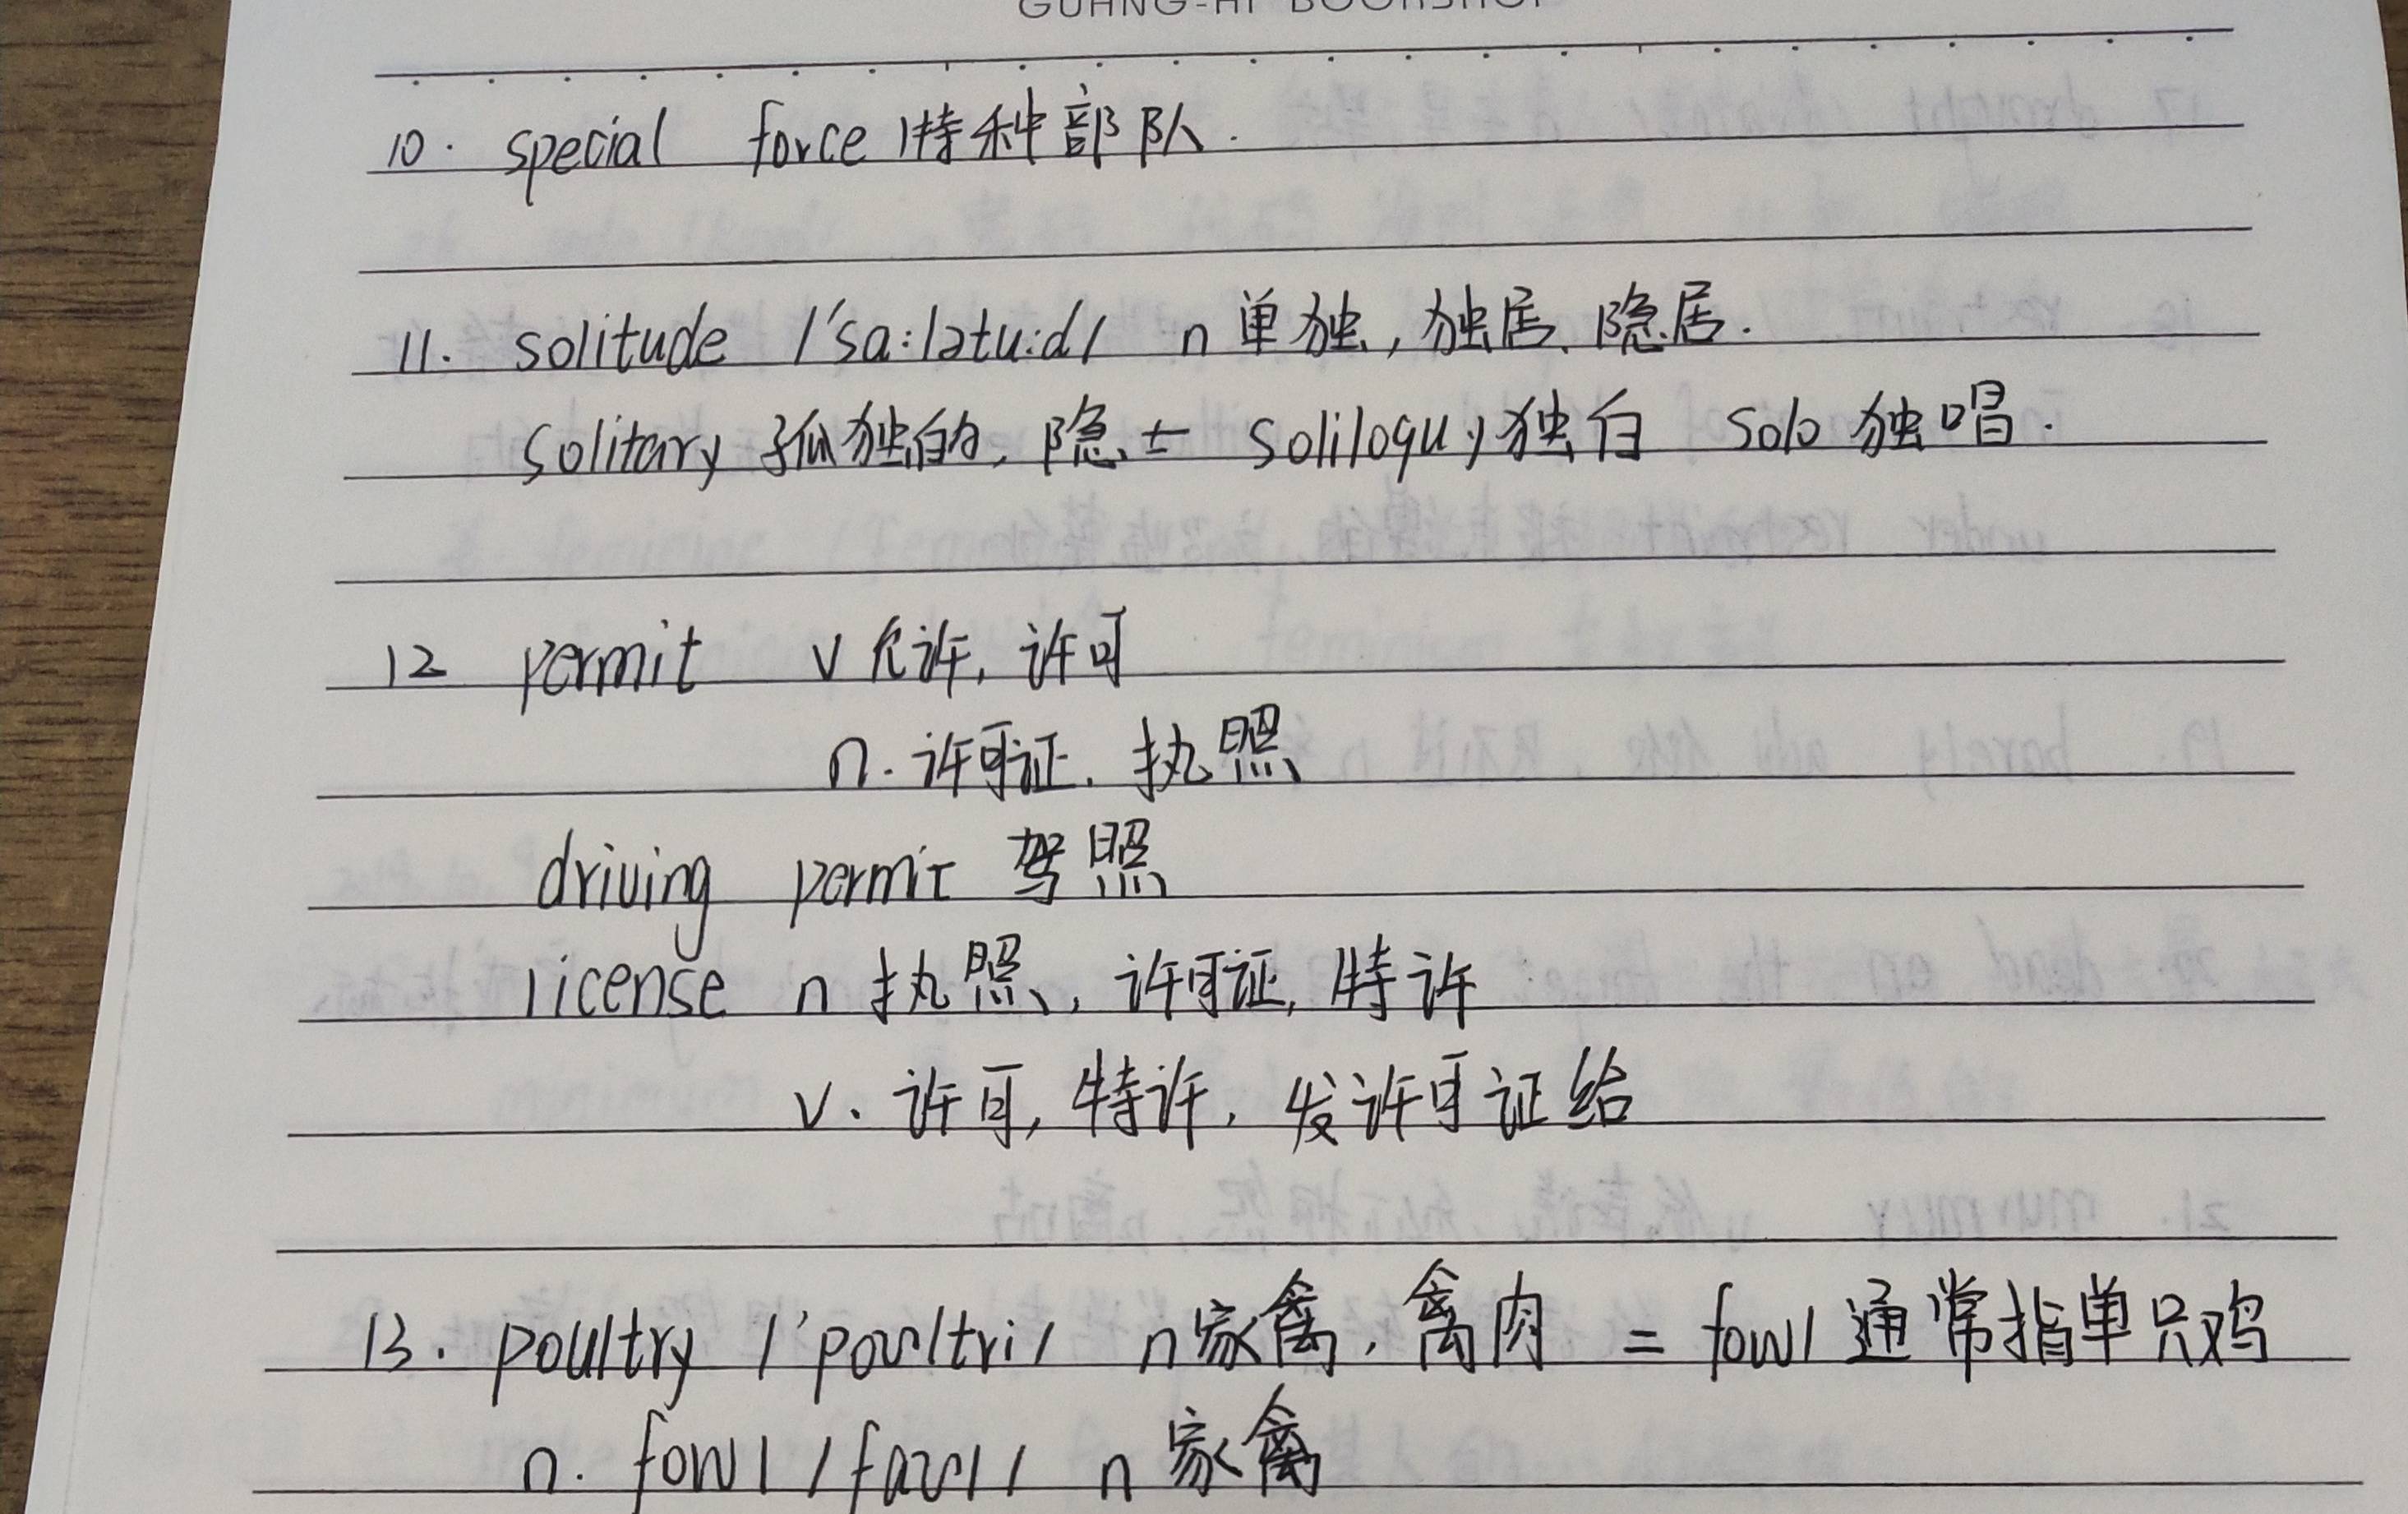 GUANG-HI BOOKSHOP
10. special force 特种部队.
11. solitude /'sa:lətu:d/ n 单独, 独居、隐居.
solitary 孤独的, 隐士 soliloquy 独白 solo 独唱.
12 permit v 允许, 许可
n. 许可证. 执照
driving permit 驾照
license n 执照, 许可证, 特许
v. 许可, 特许, 发许可证给
13. poultry /'poʊltri/ n 家禽, 禽肉 = fowl 通常指单只鸡
n. fowl /faʊl/ n 家禽